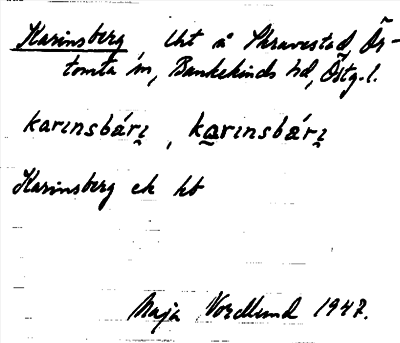 Karinsberg, lht å Skravestad, Ör-
tomta sn, Bankekinds hd, Östg. l.
karɪnsbárı̯, ka̲rɪnsbárı̯
Karinsberg ek kb
Maja Nordlund 1947.